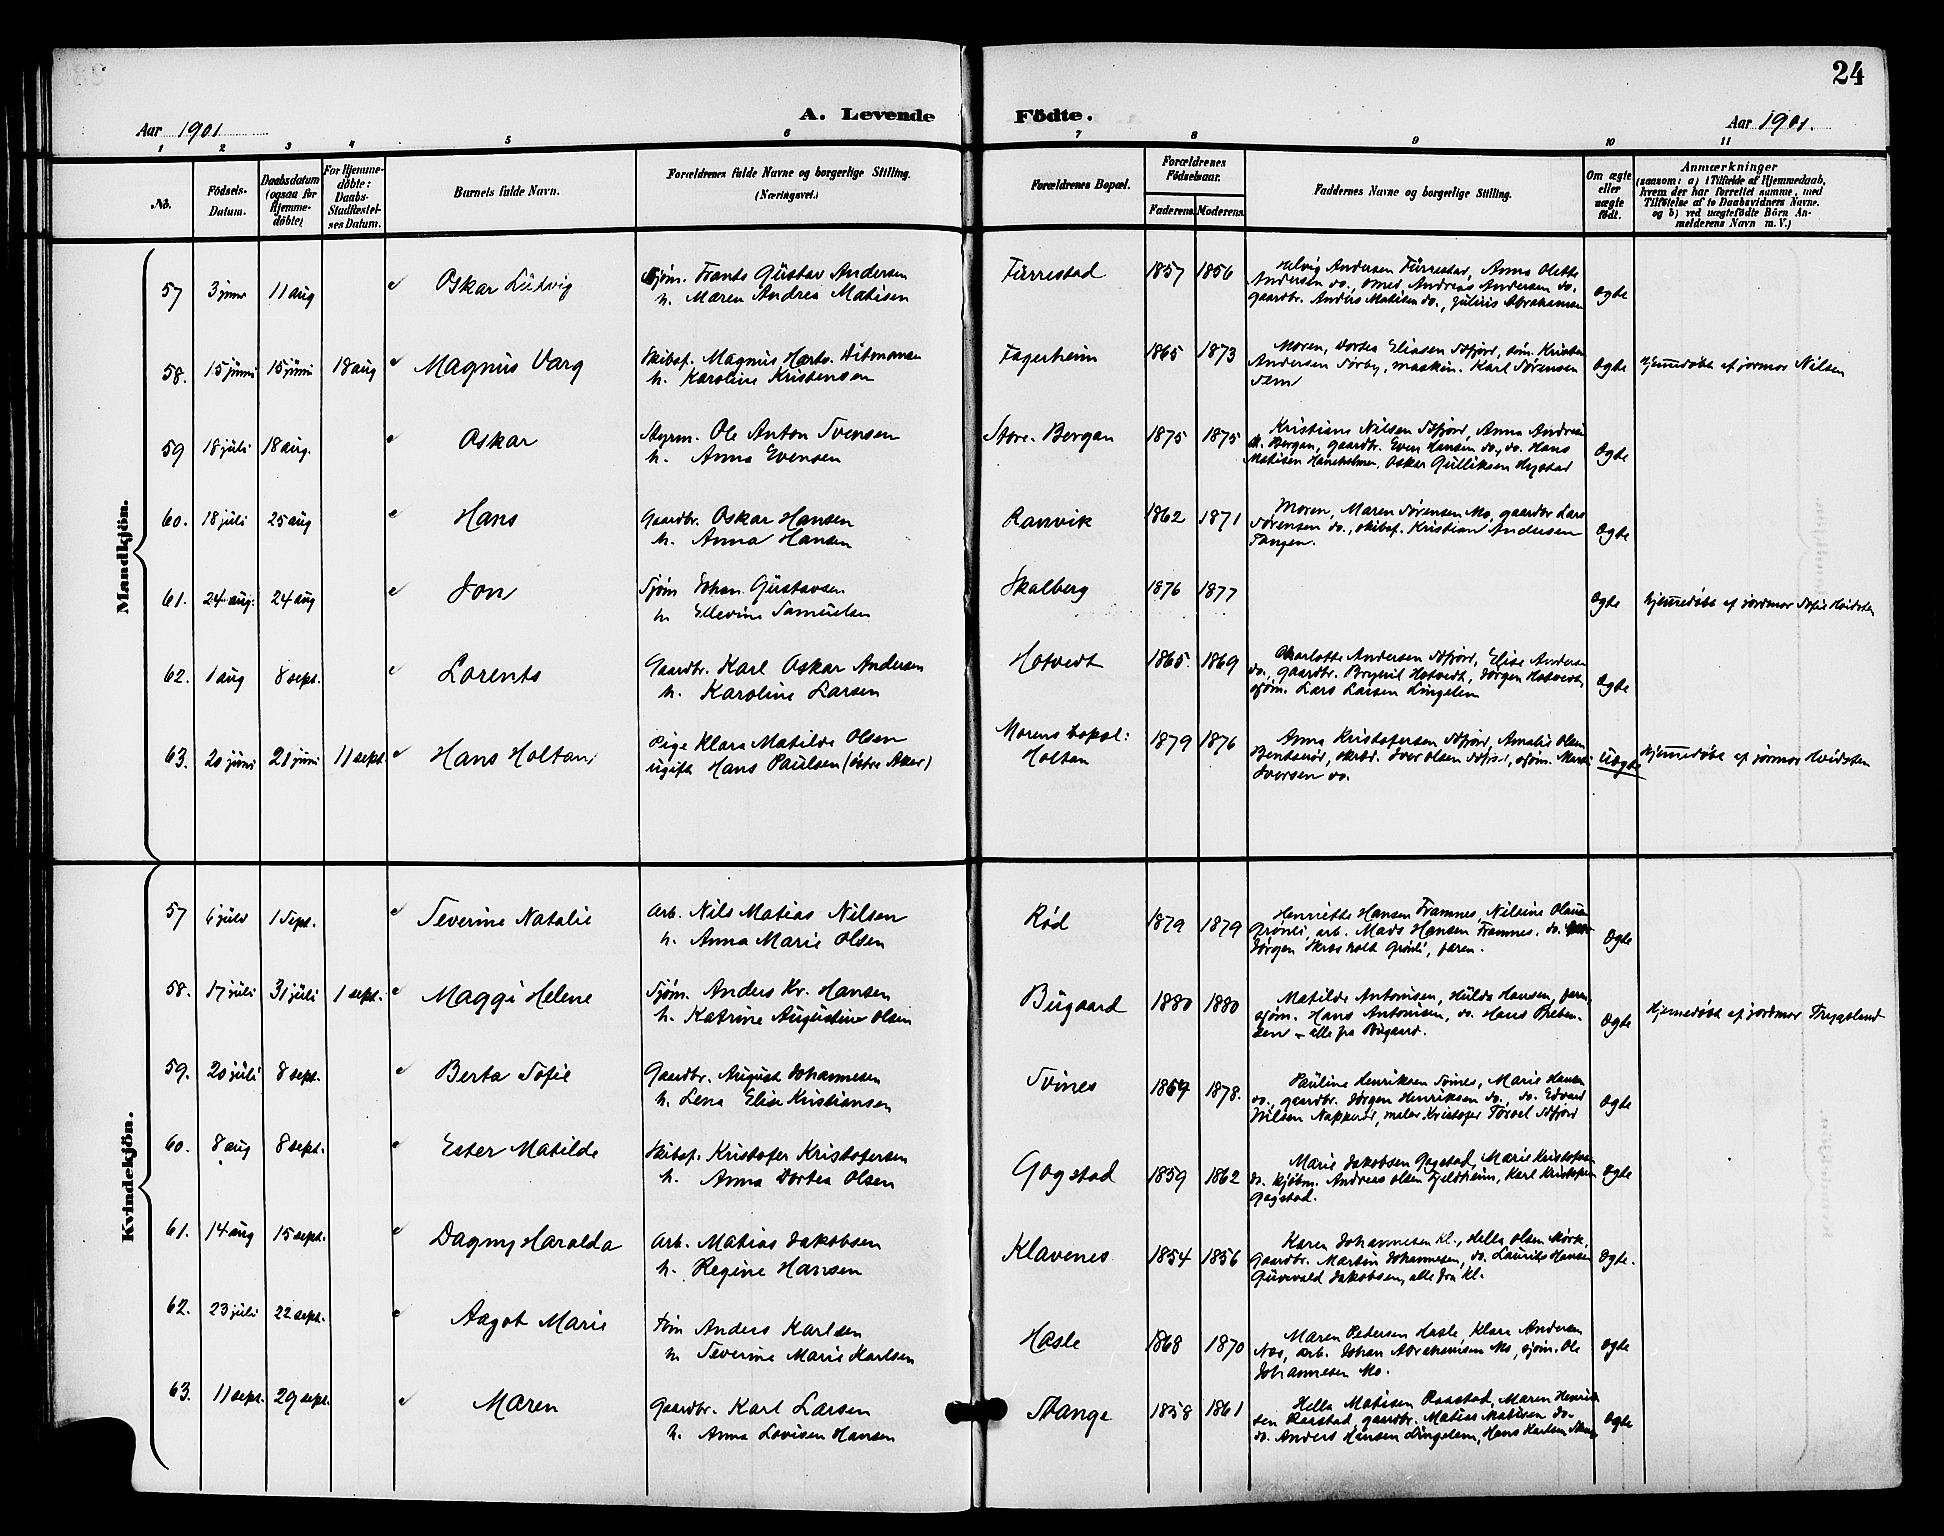 24
A. Levende Födte.
Aar 1901
Aar 1901.
1 2 3 4 5 6 7 8 9 10 11
No.
Födsels-Datum.
Daabsdatum (ogsaa for Hjemme-döbte).
For Hjemme-döbte: Daabs-Stadfæstel-ses Datum.
Barnets fulde Navn.
Forældrenes fulde Navne og borgerlige Stilling. (Næringsvei.)
Forældrenes Bopæl.
Forældrenes Födselsaar.
Faderens. Moderens.
Faddernes Navne og borgerlige Stilling.
Om ægte eller uægte födt.
Anmærkninger
(saasom: a) i Tilfælde af Hjemmedaab,
hvem der har forrettet samme, med
Tilföielse af to Daabsvidners Navne.
og b) ved uægtefödte Börn An-
melderens Navn m. V.)
Mandkjön.
57 3 juni 11 aug Oskar Ludvig
Sjøm. Frants Gustav Andersen
h. Maren Andrea Matisen
Furrestad 1857 1856
Helvig Andersen Furrestad, Anna Olette
Andersen do., smed Andreas Andersen do.
gaardbr. Anders Matisen do., Julius Abrahamsen
ægte
58. 15 juni 15 juni 18 aug Magnus Varg
Skibsf. Magnus Hartv. Ditmansen
h. Karoline Kristensen
Fagerheim 1865 1873
Moren, Dortea Eliasen Sdfjord, søm. Kristen
Andersen Sørby, maskin. Karl Sørensen
Sem
ægte hjemmedøbt af jormor Nilsen
59 18 juli 18 aug. Oskar
Styrm. Ole Anton Svensen
h. Anna Evensen
Store-Bergan 1875 1875
Kristiane Nilsen Sdfjord, Anna Andrea
St. Bergan, gaardbr. Even Hansen do., do. Hans
Matisen Haneholmen, Oskar Gulliksen Hystad
ægte
60. 18 juli 25 aug Hans
Gaardbr. Oskar Hansen
h. Anna Hansen
Ranvik 1862 1871
Moren, Maren Sørensen Mo, gaardbr Lars
Sørensen do., skibsf. Kristian Andersen
Tangen.
ægte
61. 24 aug. 24 aug Jon
Sjøm Johan Gustavsen
h Ellevine Samuelsen
Skalberg 1876 1877
ægte hjemmedøbt af jordmor Sofie Hvidsten
62. 1 aug 8 sept. Lorents
Gaardbr. Karl Oskar Andersen
h. Karoline Larsen
Hotvedt 1865. 1869
Charlotte Andersen Sdfjord, Elise Andersen
do., gaardbr. Bryniel Hotvedt, Jørgen Hotvedt,
sjøm. Lars Larsen Lingelem
ægte
63. 20 juni 20 juni 11 sept Hans Holtan
Pige Klara Matilde Olsen
ugift Hans Paulsen (østre Aker)
Morens bopæl:
Holtan
1879 1876
Anna Kristofersen Sdfjord, Amalie Olsen
Bentserød, skrbd. Iver Olsen Sdfjord, sjøm. Martin
Iversen do.
Uægte hjemmedøbt af jormor Hvidsten
Kvindekjön.
57 6 july 1 Sept. Severine Natalie
Arb. Nils Matias Nilsen
h. Anna Marie Olsen
Rød 1879 1879
Henriette Hansen Framnes, Nilsine Olausen
Grønli, arb. Mads Hansen Framnes. do.
Jørgen Skrosholt Grønli, faren.
ægte
58. 17 juli 31 juli 1 sept. Maggi Helene
Sjøm. Anders Kr. Hansen
h. Katrine Augustine Olsen
Bugaard 1880 1880
Matilde Antonisen, Hulda Hansen, faren
sjøm. Hans Antonisen, do. Hans Preben-
sen – alle fra Bugaard.
ægte hjemmedøbt af jordmor Trygsland
59. 20 juli 8 sept. Berta Sofie
Gaardbr. August Johannesen
h. Lena Elise Kristiansen
Svines 1869 1878.
Pauline Henriksen Svines, Marie Hansen
do., gaardbr. Jørgen Henriksen do., do. Edvard
Nilsen Napperød, maler Kristofer Torsel Sdfjord
ægte
60. 8 aug 8 sept. Ester Matilde
Skibsf. Kristofer Kristofersen
h. Anna Dortea Olsen
Gogstad 1859 1862
Marie Jakobsen Gogstad, Marie Kristofersen
do. kjøbm. Andreas Olsen Fjeldheim, Karl Kristofersen
Gogstad.
ægte
61. 14 aug 15 sept. Dagny Haralda
Arb. Matias Jakobsen
h. Regine Hansen
Klavenes 1854 1856
Karen Johannesen Kl., Hella Olsen Mørk,
Gaardbr. Martin Johannesen, do. Laurits Hansen
Gunvald Jakobsen, alle fra Kl.
ægte.
62. 23 juli 22 sept. Aagot Marie
Tøm Anders Karlsen
h Severine Marie Karlsen
Hasle 1868 1870
Maren Pedersen Hasle, Klara Andersen
Næs, Arb. Johan Abrahamsen Mo, sjøm. Ole
Johannesen Mo.
ægte
63. 11 sept. 29 sept. Maren
Gaardbr. Karl Larsen
h. Anna Lovisen Hansen
Stange 1858 1861
Hella Matisen Raastad, Maren Henrik-
sen Raastad, gaardbr. Matias Matisen do.
do. Anders Hansen Lingelem, Hans Karlsen
ægte